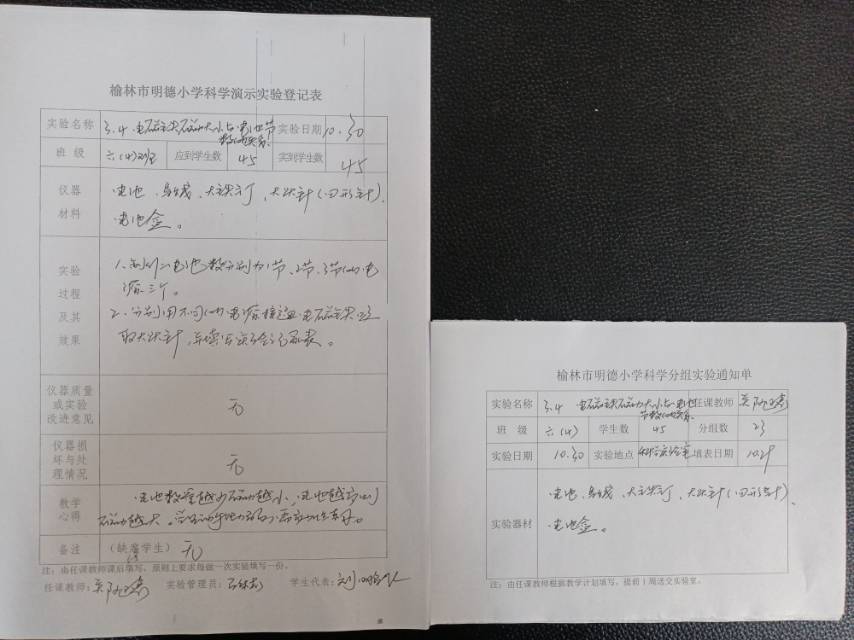 榆林市明德小学科学演示实验登记表
实验名称 3.4 电磁铁磁力大小与电池节数的关系 实验日期 10.30
班 级 六(4)班 应到学生数 45 实到学生数 45
仪器材料
电池、导线、大铁钉、大头针(回形针)、
电池盒。
实验过程及其效果
1. 制作 电池数分别为1节、2节、3节的电
源三个。
2. 分别用不同的电源接通电磁铁
取大头针
仪器质量或实验改进意见 无
仪器损坏与处理情况 无
教学心得
电池数量越少磁力越小,电池越
磁力越大。
备注 (缺席学生) 无
注:由任课教师课后填写,原则上要求每做一次实验填写一份。
任课教师: 实验管理员: 学生代表:
榆林市明德小学科学分组实验通知单
实验名称 3.4 电磁铁磁力大小与电池节数的关系 任课教师
班 级 六(4) 学生数 45 分组数 23
实验日期 10.30 实验地点 科学实验室 填表日期 10.29
实验器材
电池、导线、大铁钉、大头针(回形针)、
电池盒。
注:由任课教师根据教学计划填写,提前1周送交实验室。